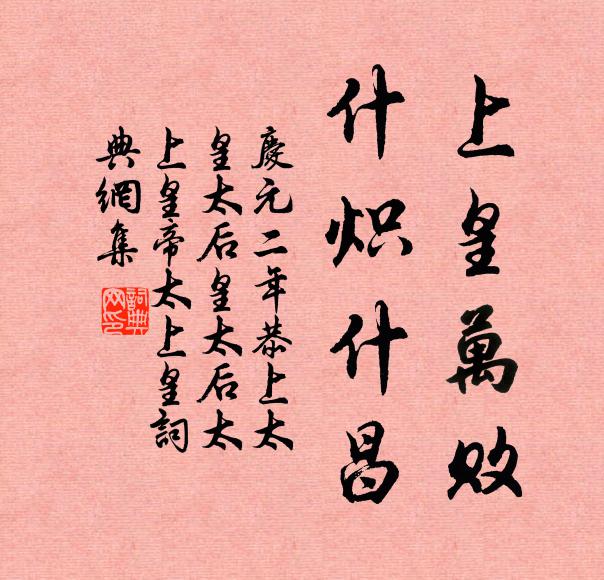 上皇萬
什炽什昌
慶元二年恭上太
皇太后皇太后太
上皇帝太上皇詞
典網集
詞典
网印